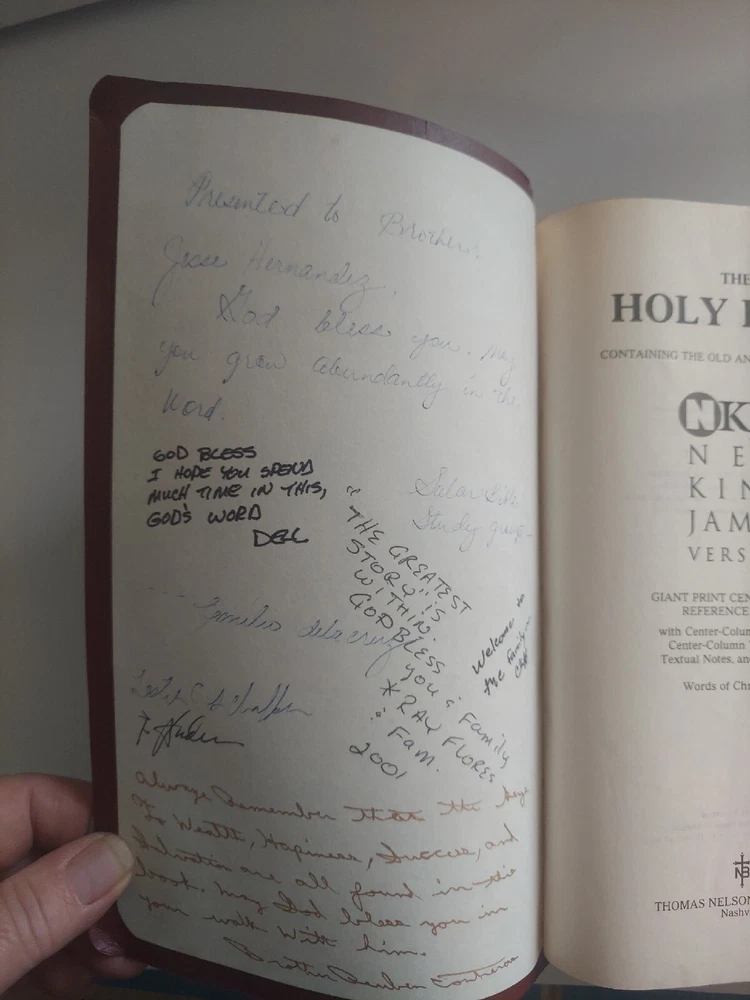 Presented to Brother,
Jesse Hernandez,
God bless you. May
you grow abundantly in the
Word.
Bible
Study group
GOD BLESS
I HOPE YOU SPEND
MUCH TIME IN THIS,
GOD'S WORD
DELL
"THE GREATEST
STORY" IS
WITHIN.
GOD BLESS
YOU & FAMILY
* RAY FLORES
& FAM.
2001
Welcome to
the family
Emilio delacruz
Always Remember that the keys
To Wealth, Hapiness, Success, and
Salvation are all found in this
book. May God bless you in
your walk with him.
Brother Ruben Contreras
THE
HOLY
CONTAINING THE OLD AN
NK
NE
KIN
JAM
VERS
GIANT PRINT CEN
REFERENCE
with Center-Colum
Center-Column
Textual Notes, an
Words of Chr
NB
THOMAS NELSON
Nashv